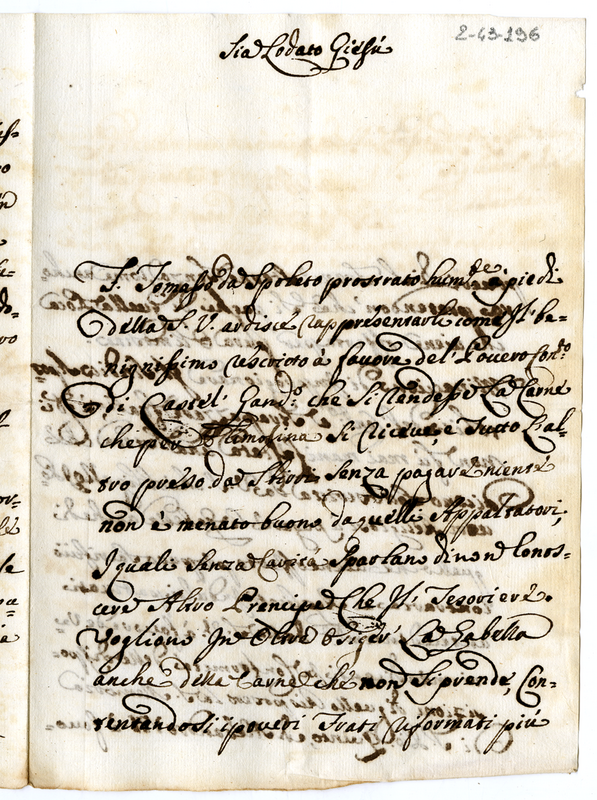 2-43-196
Sia Lodato Giesù
F. Tomasso da Spoleto prostrato hum.te a piedi
della S. V. ardisce rappresentarli come Il be-
nignissimo rescritto à favore del Povero Con.to
di Castel Gand.o che si rendesse La Carne
che per Elemosina si riceve, e Tutto L'al-
tro preso da senza pagar niente
non è menato buono da quelli Appaltatori,
I quali senza Carità Sparlano di non Conos-
cere Altro Prencipe Che Il Tesoriere.
Vogliono In oltre esiger La Gabella
anche della Carne che non si prende, Con-
tentandosi i poveri Frati riformati più